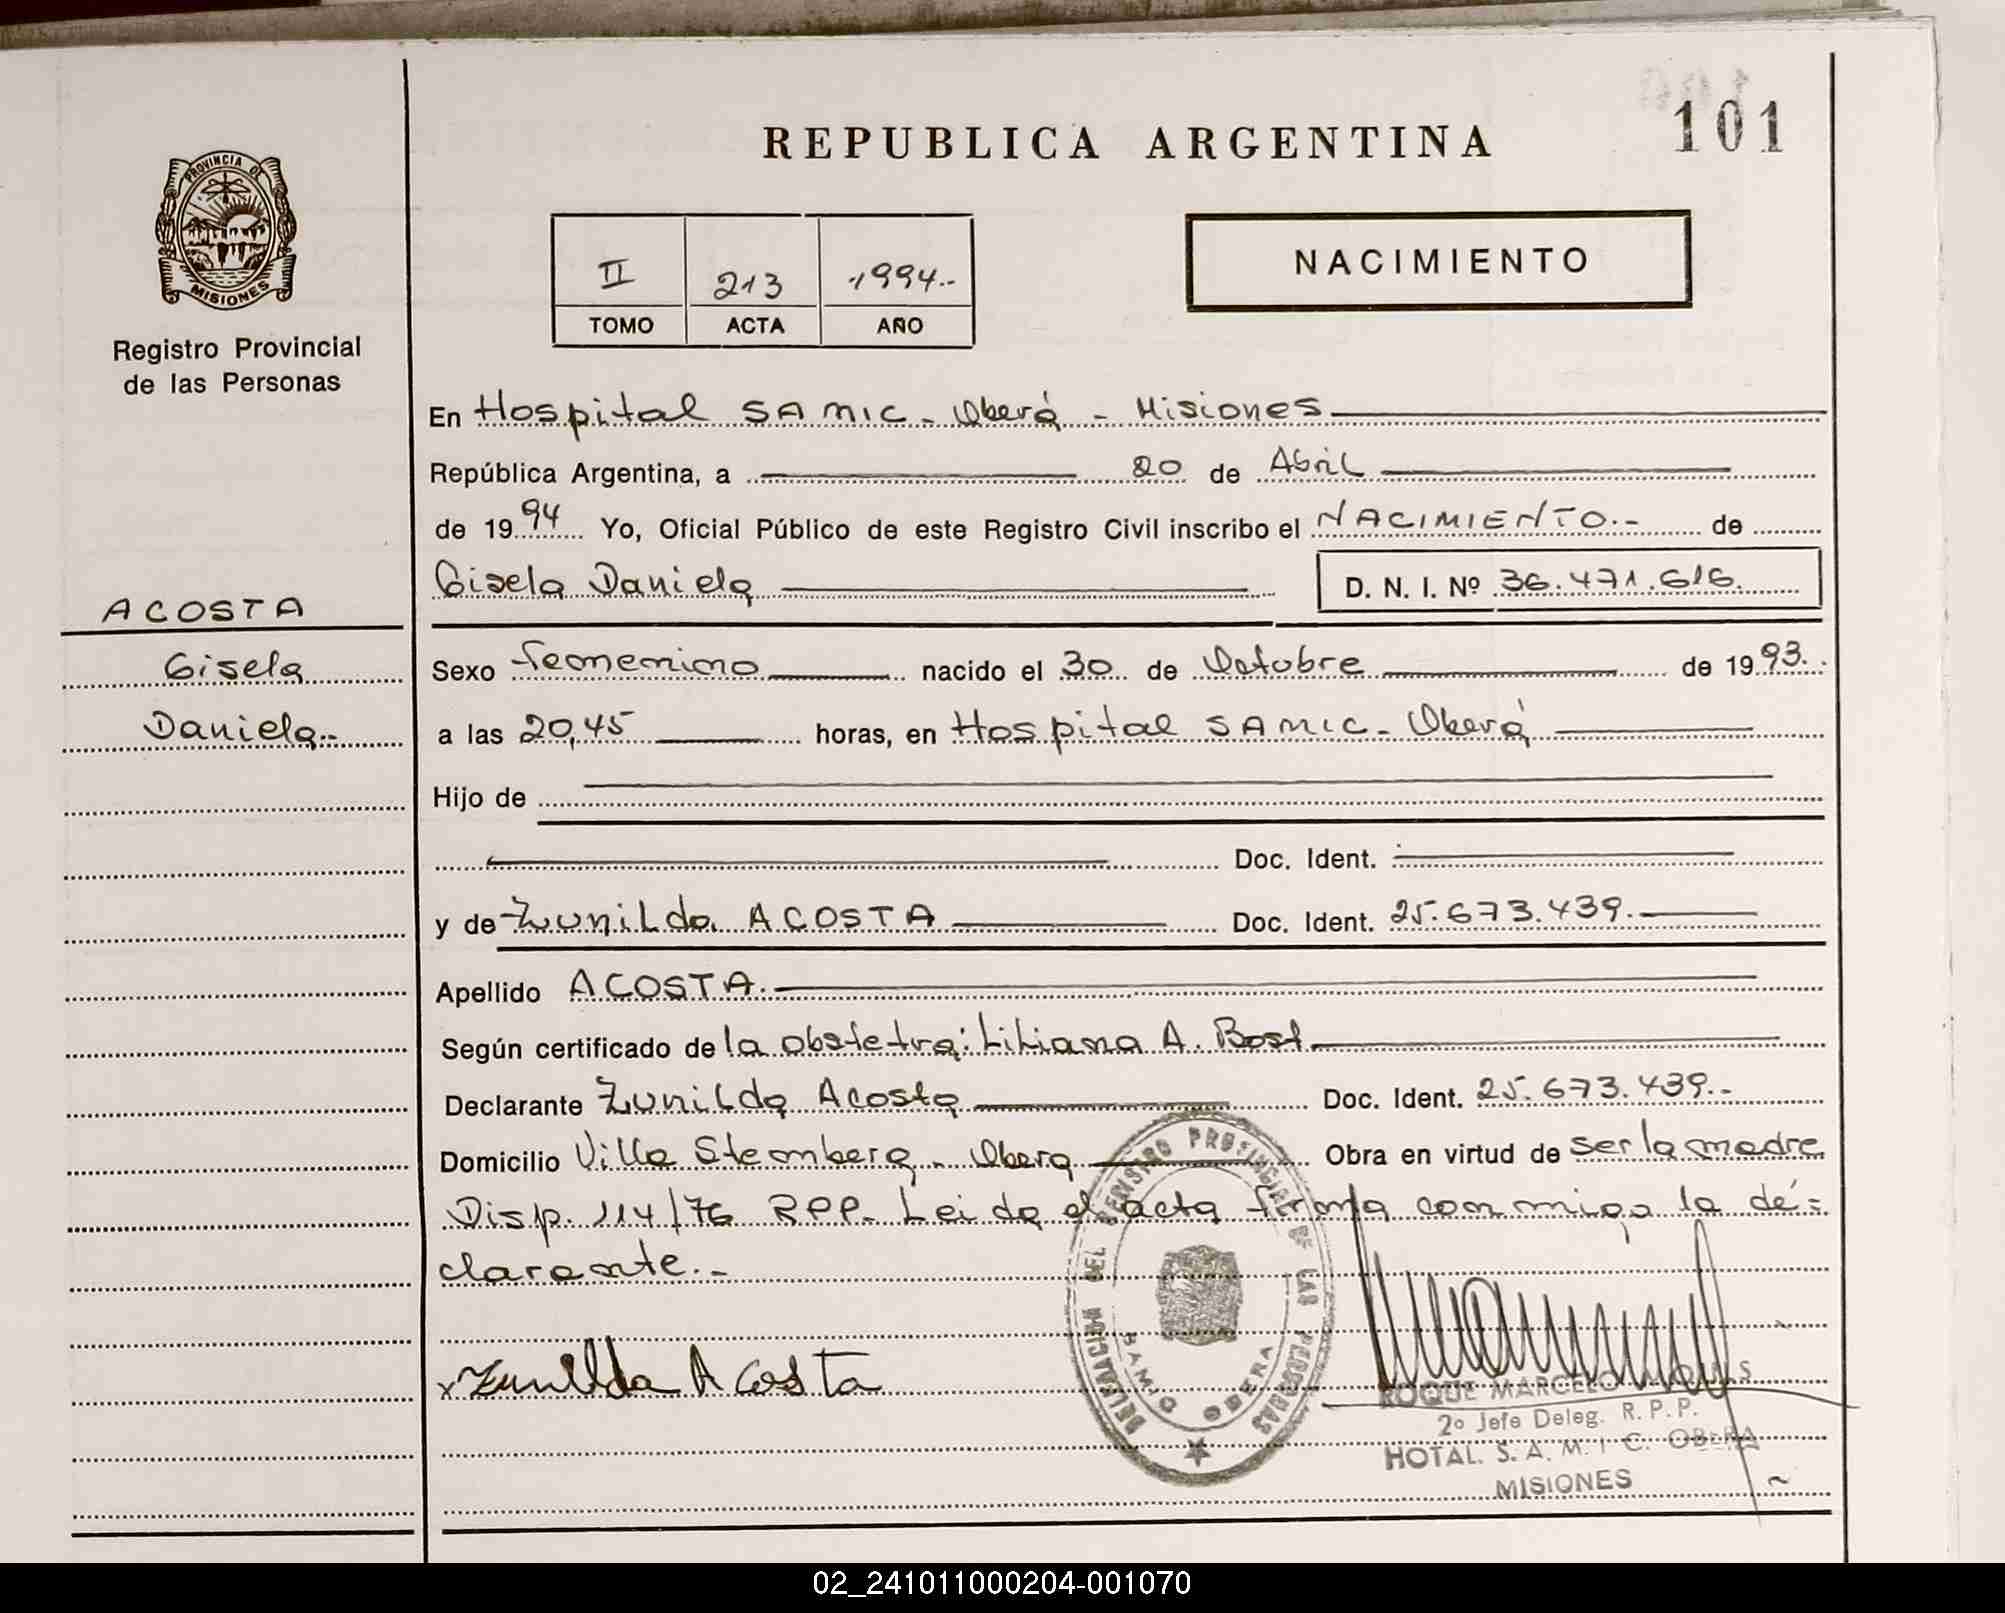 PROVINCIA DE
MISIONES
Registro Provincial
de las Personas
REPUBLICA ARGENTINA
101
II 213 1994.-
TOMO ACTA AÑO
NACIMIENTO
En Hospital SAMIC - Oberá - Misiones
República Argentina, a 20 de Abril
de 1994 Yo, Oficial Público de este Registro Civil inscribo el NACIMIENTO.- de
Gisela Daniela D. N. I. Nº 36.471.616.
ACOSTA
Gisela
Daniela.-
Sexo femenino nacido el 30 de Octubre de 1993.
a las 20,45 horas, en Hospital SAMIC - Oberá
Hijo de
Doc. Ident.
y de Zunilda ACOSTA Doc. Ident. 25.673.439.
Apellido ACOSTA.
Según certificado de la obstetra: Liliana A. Bost
Declarante Zunilda Acosta Doc. Ident. 25.673.439.-
Domicilio Villa Stemberg - Obera Obra en virtud de ser la madre
Disp. 114/76 RPP. Leida el acta firma conmigo la de=
clarante.-
x Zunilda Acosta
DELEGACION DEL REGISTRO PROVINCIAL DE LAS PERSONAS
OBERA
ROQUE MARCELO
2º Jefe Deleg. R. P. P.
HOTAL. S. A. M. I C. OBERA
MISIONES
02_241011000204-001070